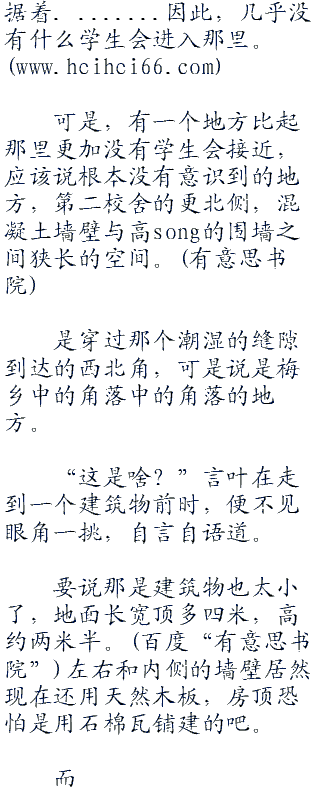 据着. .......因此，几乎没
有什么学生会进入那里。
(www.hcihci66.com)
可是，有一个地方比起
那里更加没有学生会接近，
应该说根本没有意识到的地
方，第二校舍的更北侧，混
凝土墙壁与高song的围墙之
间狭长的空间。(有意思书
院)
是穿过那个潮湿的缝隙
到达的西北角，可是说是梅
乡中的角落中的角落的地
方。
“这是啥？”言叶在走
到一个建筑物前时，便不见
眼角一挑，自言自语道。
要说那是建筑物也太小
了，地面长宽顶多四米，高
约两米半。(百度“有意思书
院”)左右和内侧的墙壁居然
现在还用天然木板，房顶恐
怕是用石棉瓦铺建的吧。
而